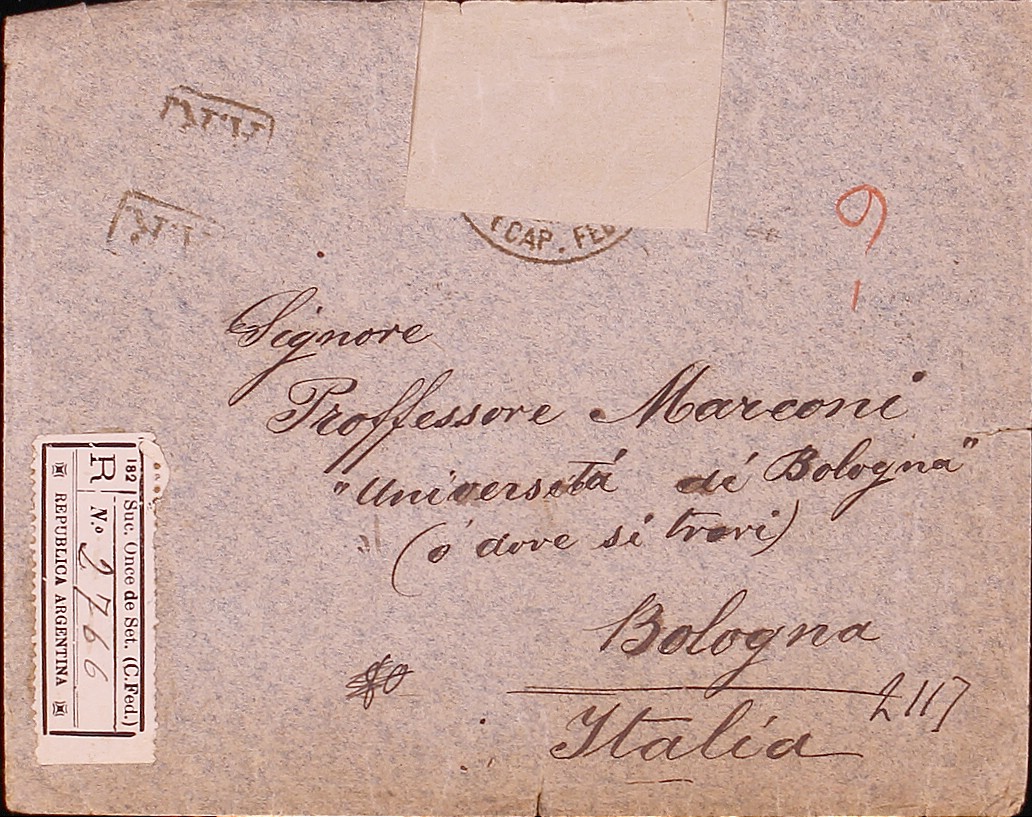 CAP. FED
Signore
Proffessore Marconi
"Universitá di Bologna"
(ó dove si trovi)
Bologna
Italia
2117
9
182 Suc. Once de Set. (C.Fed.)
R N.o 2766
REPUBLICA ARGENTINA